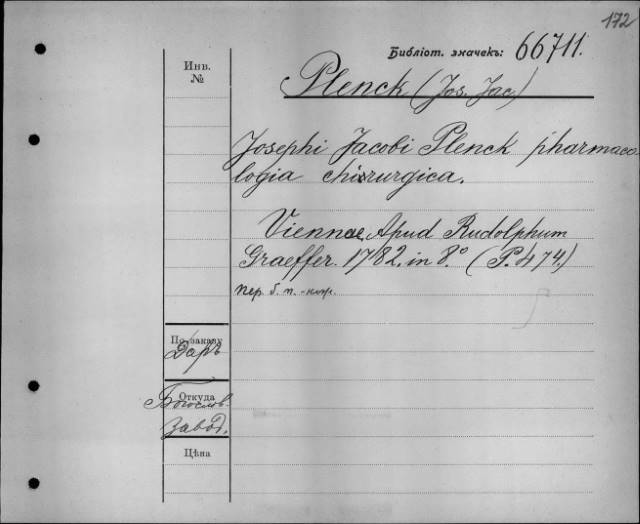 172
Библіот. значекъ: 66711.
Инв.
№
Plenck (Jos. Jac.)
Josephi Jacobi Plenck pharmaco-
logia chirurgica.
Viennae, Apud Rudolphum
Graeffer. 1782. in 8.° (P. 474.)
пер. б. п. -кор.
По заказу
Даръ
Откуда
Богослов.
Завод.
Цѣна